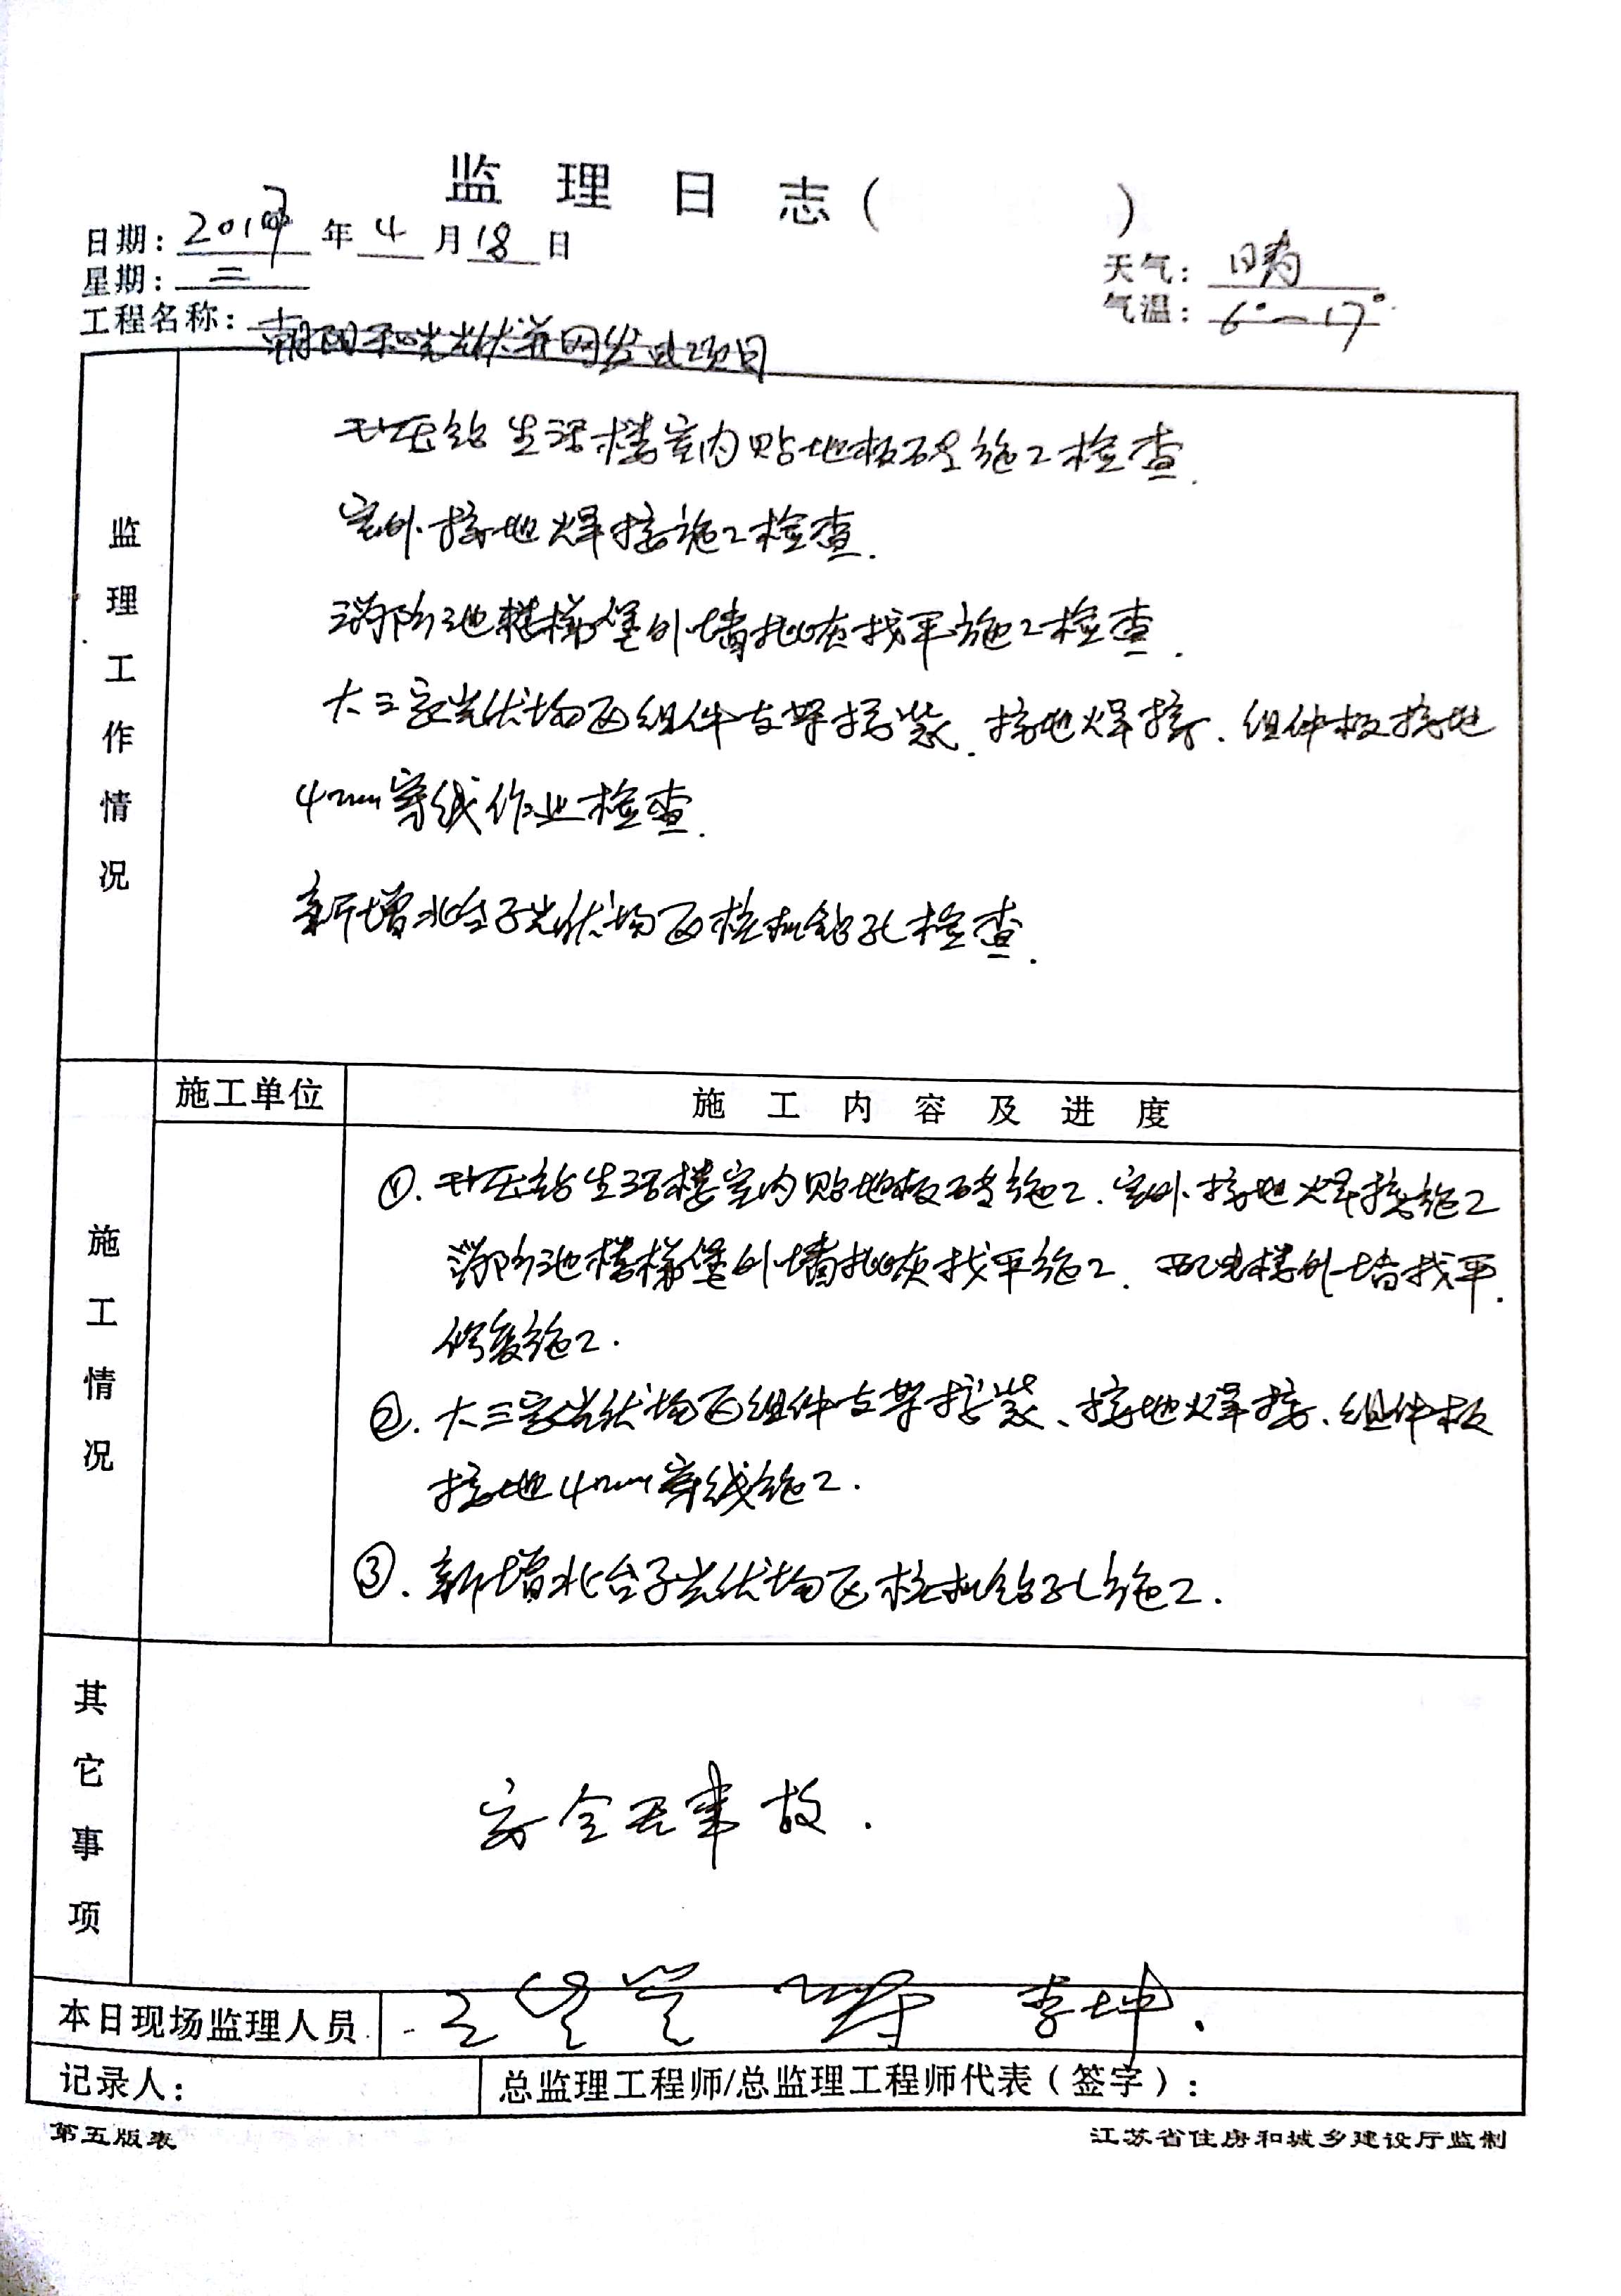 监理日志(          )
日期: 年 4 月 18 日
天气: 晴
星期: 三
气温: 6°—17°
工程名称: 朝阳和光光伏并网发电项目
监理工作情况
升压站生活楼室内贴地板砖施工检查.
室外接地焊接施工检查.
消防池楼梯堡外墙批灰找平施工检查.
大三家光伏场区组件支架接装、接地焊接、组件板接地
4mm穿线作业检查.
新增北台子光伏场区桩机钻孔检查.
施工情况
施工单位
施工内容及进度
①. 升压站生活楼室内贴地板砖施工、室外接地焊接施工
消防池楼梯堡外墙批灰找平施工、配电楼外墙找平.
修复施工.
②. 大三家光伏场区组件支架接装、接地焊接、组件板
接地4mm穿线施工.
③. 新增北台子光伏场区桩机钻孔施工.
其它事项
安全无事故.
本日现场监理人员 李坤.
记录人:
总监理工程师/总监理工程师代表(签字):
第五版表
江苏省住房和城乡建设厅监制